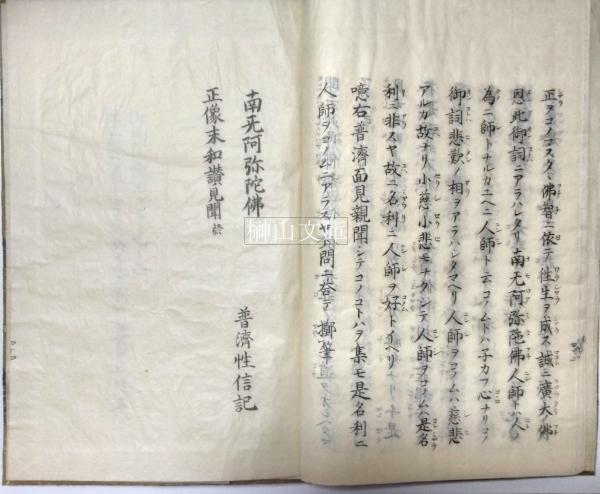 正ヲコノコスタヽ佛智ニ依テ往生ヲ成ス誠ニ廣大佛
恩此御詞ニアラハレタリ南无阿弥陀佛人師トハ人
為ニ師トナルカユヘニ人師ト云コノムトハ子カフ心ナリコノ
御詞悲歎ノ相ヲアラハシタマヘリ人師ヲコノムハ慈悲
アルカ故ナリ小慈小悲モナクシテ人師ヲコノムハ是名
利ニ非スヤ故ニ名利ニ人師ヲ好トイヘリ
噫右普濟面見親聞シテコノコトハヲ集モ是名利ニ
人師ヲコノムニアラスヤ問ニ答テ擲筆
南无阿弥陀佛
正像末和讃見聞終
普濟性信記
榊山文庫